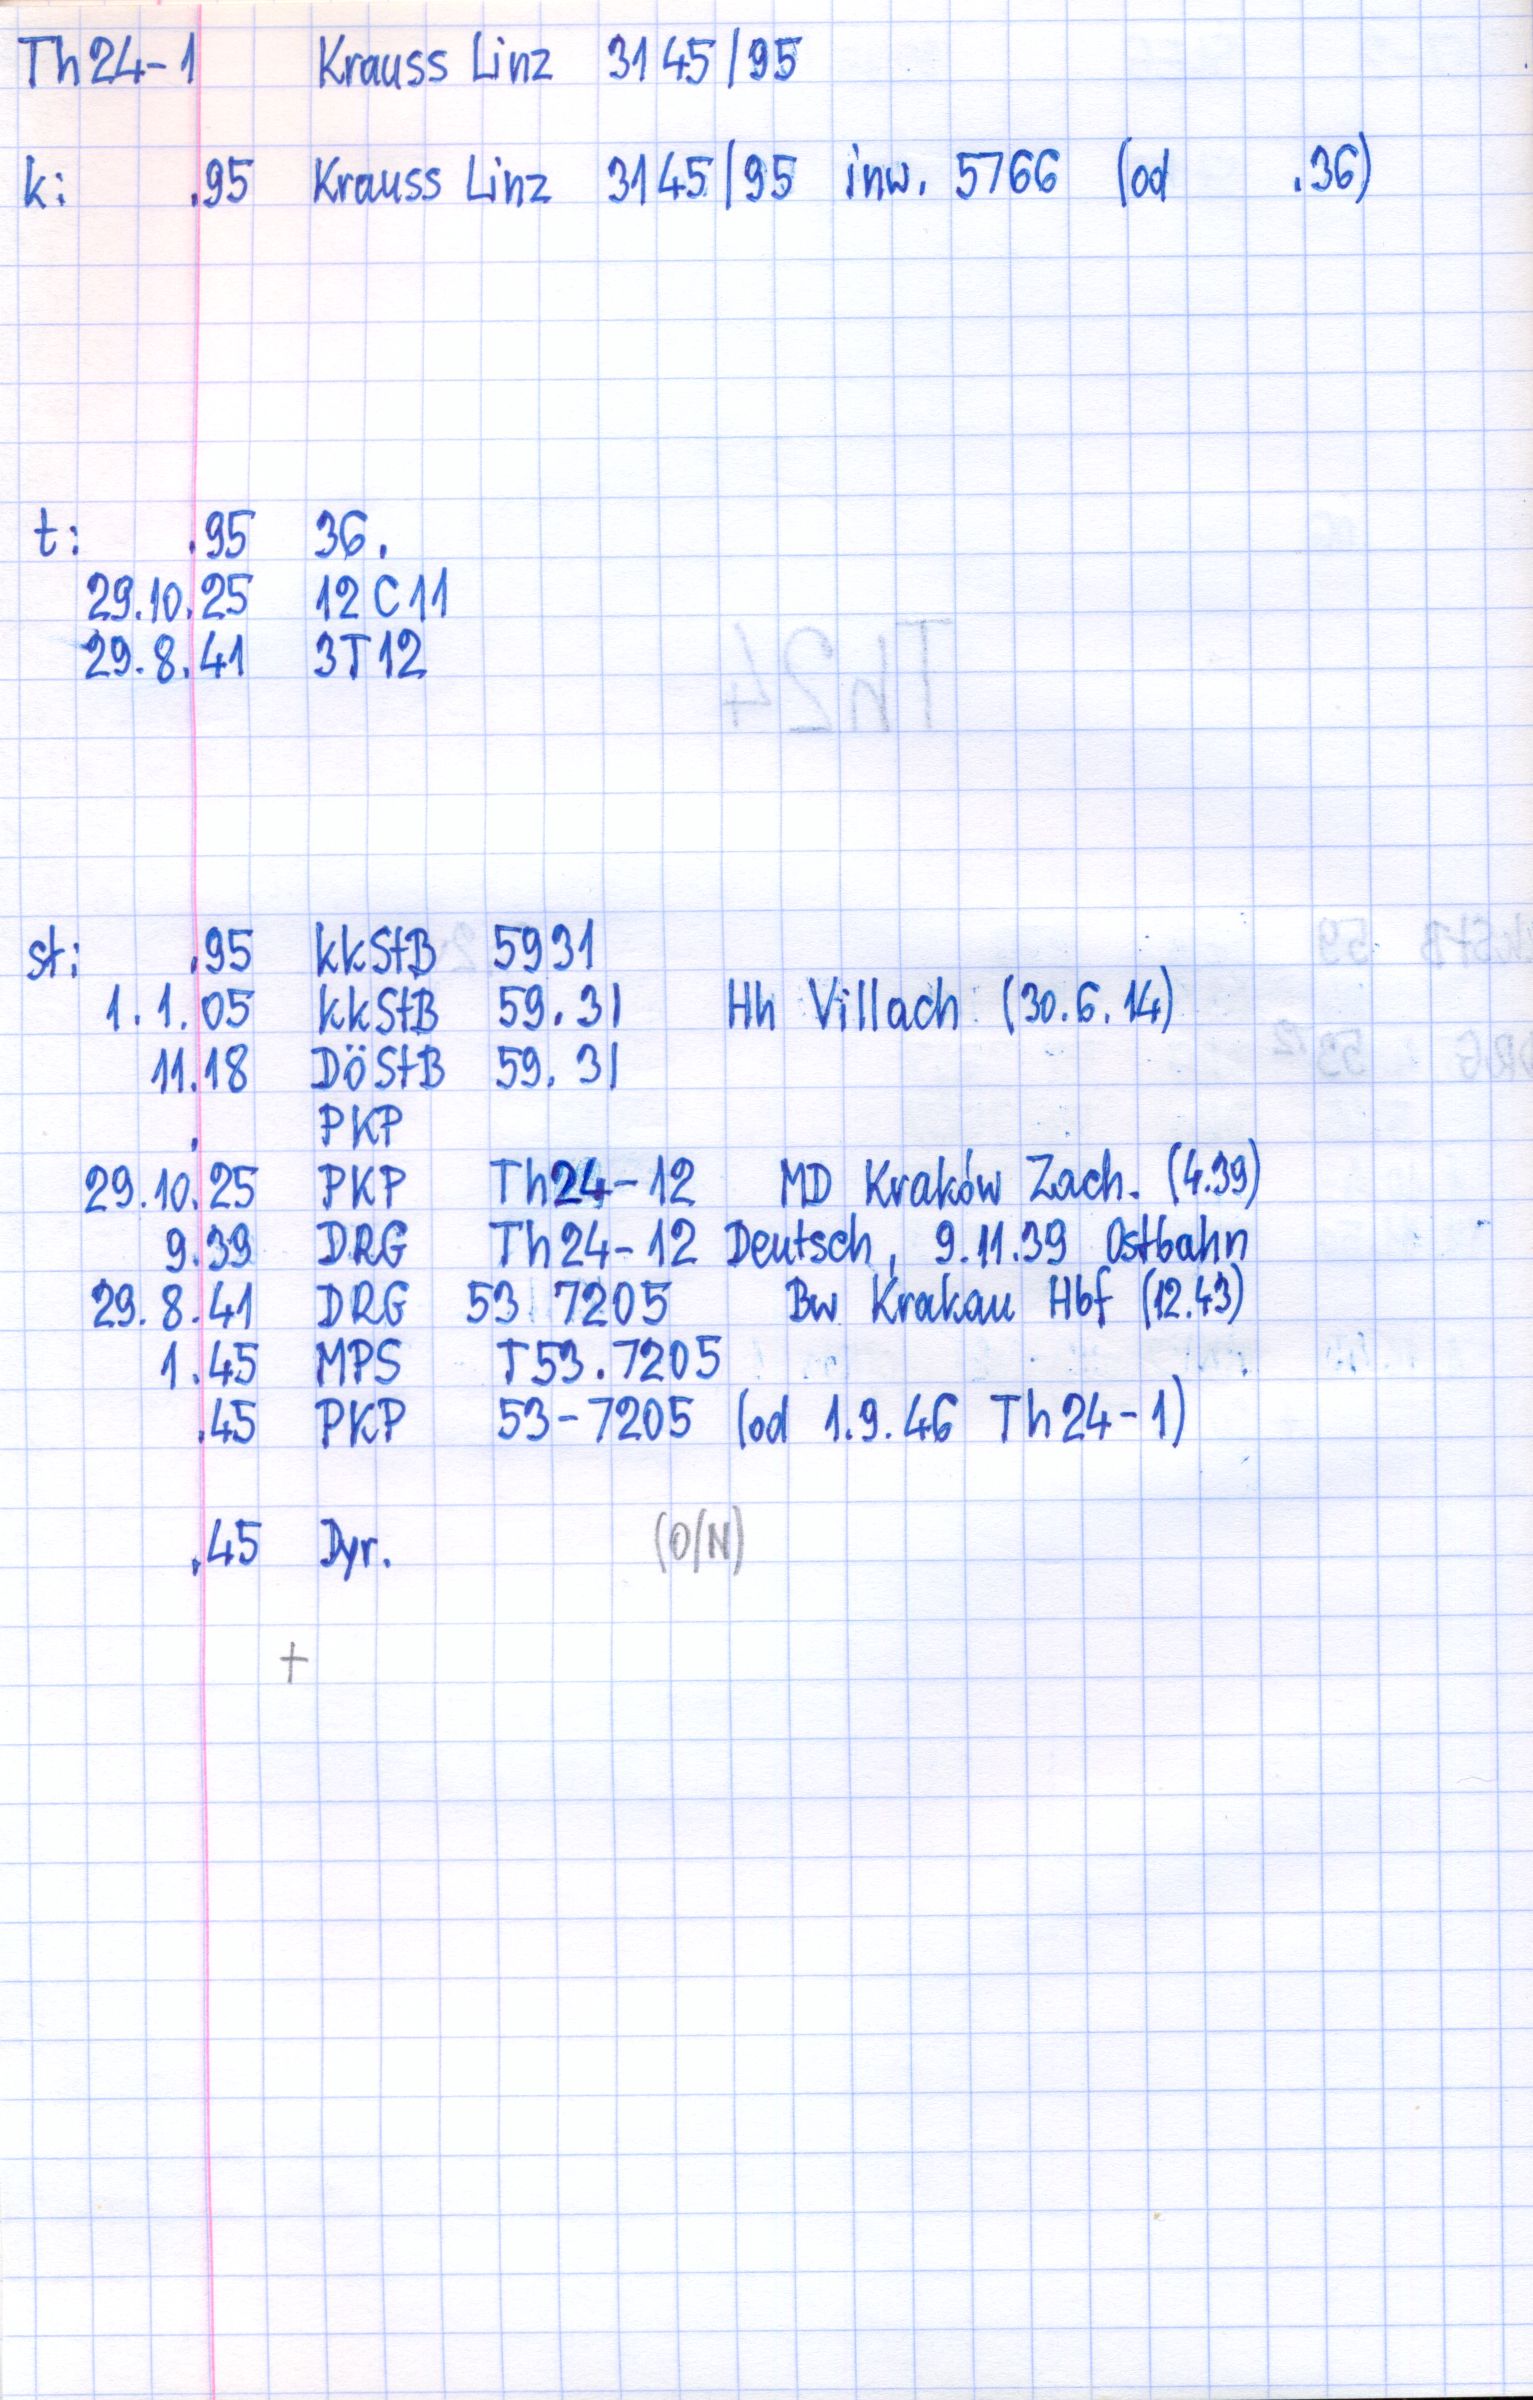 Th24-1 Krauss Linz 3145/95
k: .95 Krauss Linz 3145/95 inw. 5766 (od .36)
t: .95 36.
29.10.25 12C11
29.8.41 3T12
st: .95 kkStB 5931
1.1.05 kkStB 59.31 Hh Villach (30.6.14)
11.18 DöStB 59.31
. PKP
29.10.25 PKP Th24-12 MD Kraków Zach. (4.39)
9.39 DRG Th24-12 Deutsch, 9.11.39 Ostbahn
29.8.41 DRG 53 7205 Bw Krakau Hbf (12.43)
1.45 MPS T53.7205
.45 PKP 53-7205 (od 1.9.46 Th24-1)
.45 Dyr. (O/N)
+